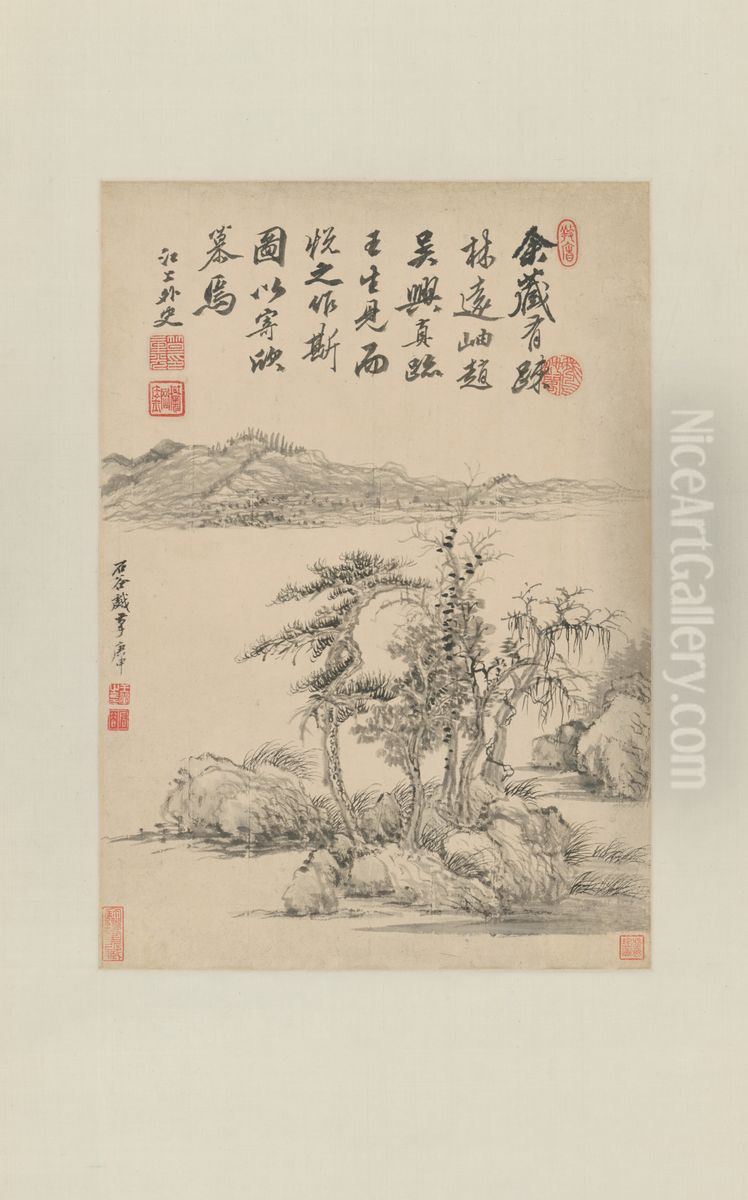 余藏有疎
林遠岫趙
吳興真跡
王生見而
悅之作斯
圖以寄欣
慕焉
江上外史
石谷戲筆 庚申
NiceArtGallery.com